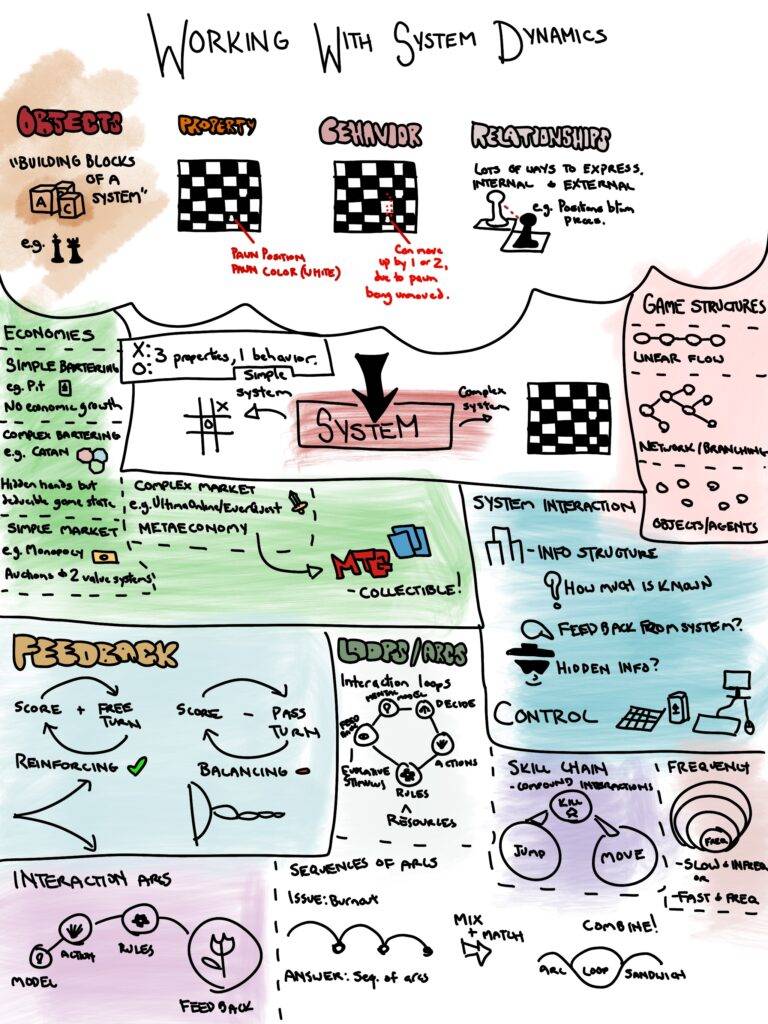 WORKING WITH SYSTEM DYNAMICS
OBJECTS
"BUILDING BLOCKS
OF A
SYSTEM"
A C
e.g.
PROPERTY
PAWN POSITION
PAWN COLOR (WHITE)
BEHAVIOR
Can move
up by 1 or 2,
due to pawn
being unmoved.
RELATIONSHIPS
LOTS OF WAYS TO EXPRESS.
INTERNAL & EXTERNAL
e.g. Positions b/twn
pieces.
ECONOMIES
SIMPLE BARTERING
eg. Pit
No economic growth
COMPLEX BARTERING
e.g. CATAN
Hidden hands but
deducible game state
SIMPLE MARKET
e.g. Monopoly
Auctions & 2 value systems
X: 3 properties, 1 behavior.
O:
Simple
system
X
O
SYSTEM
Complex
system
GAME STRUCTURES
LINEAR FLOW
NETWORK/BRANCHING
OBJECTS/AGENTS
COMPLEX MARKET
e.g. Ultima Online/EverQuest
METAECONOMY
MTG
- COLLECTIBLE!
SYSTEM INTERACTION
- INFO STRUCTURE
HOW MUCH IS KNOWN
FEEDBACK FROM SYSTEM?
HIDDEN INFO?
CONTROL
FEEDBACK
SCORE + FREE
TURN
REINFORCING
SCORE - PASS
TURN
BALANCING
LOOPS/ARCS
Interaction loops
MENTAL MODEL
DECIDE
ACTIONS
RULES
^
RESOURCES
FEED
BACK
EVOCATIVE
STIMULUS
SKILL CHAIN
- COMPOUND INTERACTIONS
KILL
JUMP
MOVE
FREQUENCY
FREQ
- SLOW & INFREQ
OR
- FAST & FREQ
INTERACTION ARCS
MODEL
ACTION
RULES
FEEDBACK
SEQUENCES OF ARCS
ISSUE: Burnout
ANSWER: Seq. of arcs
MIX
+ MATCH
COMBINE!
ARC LOOP SANDWICH